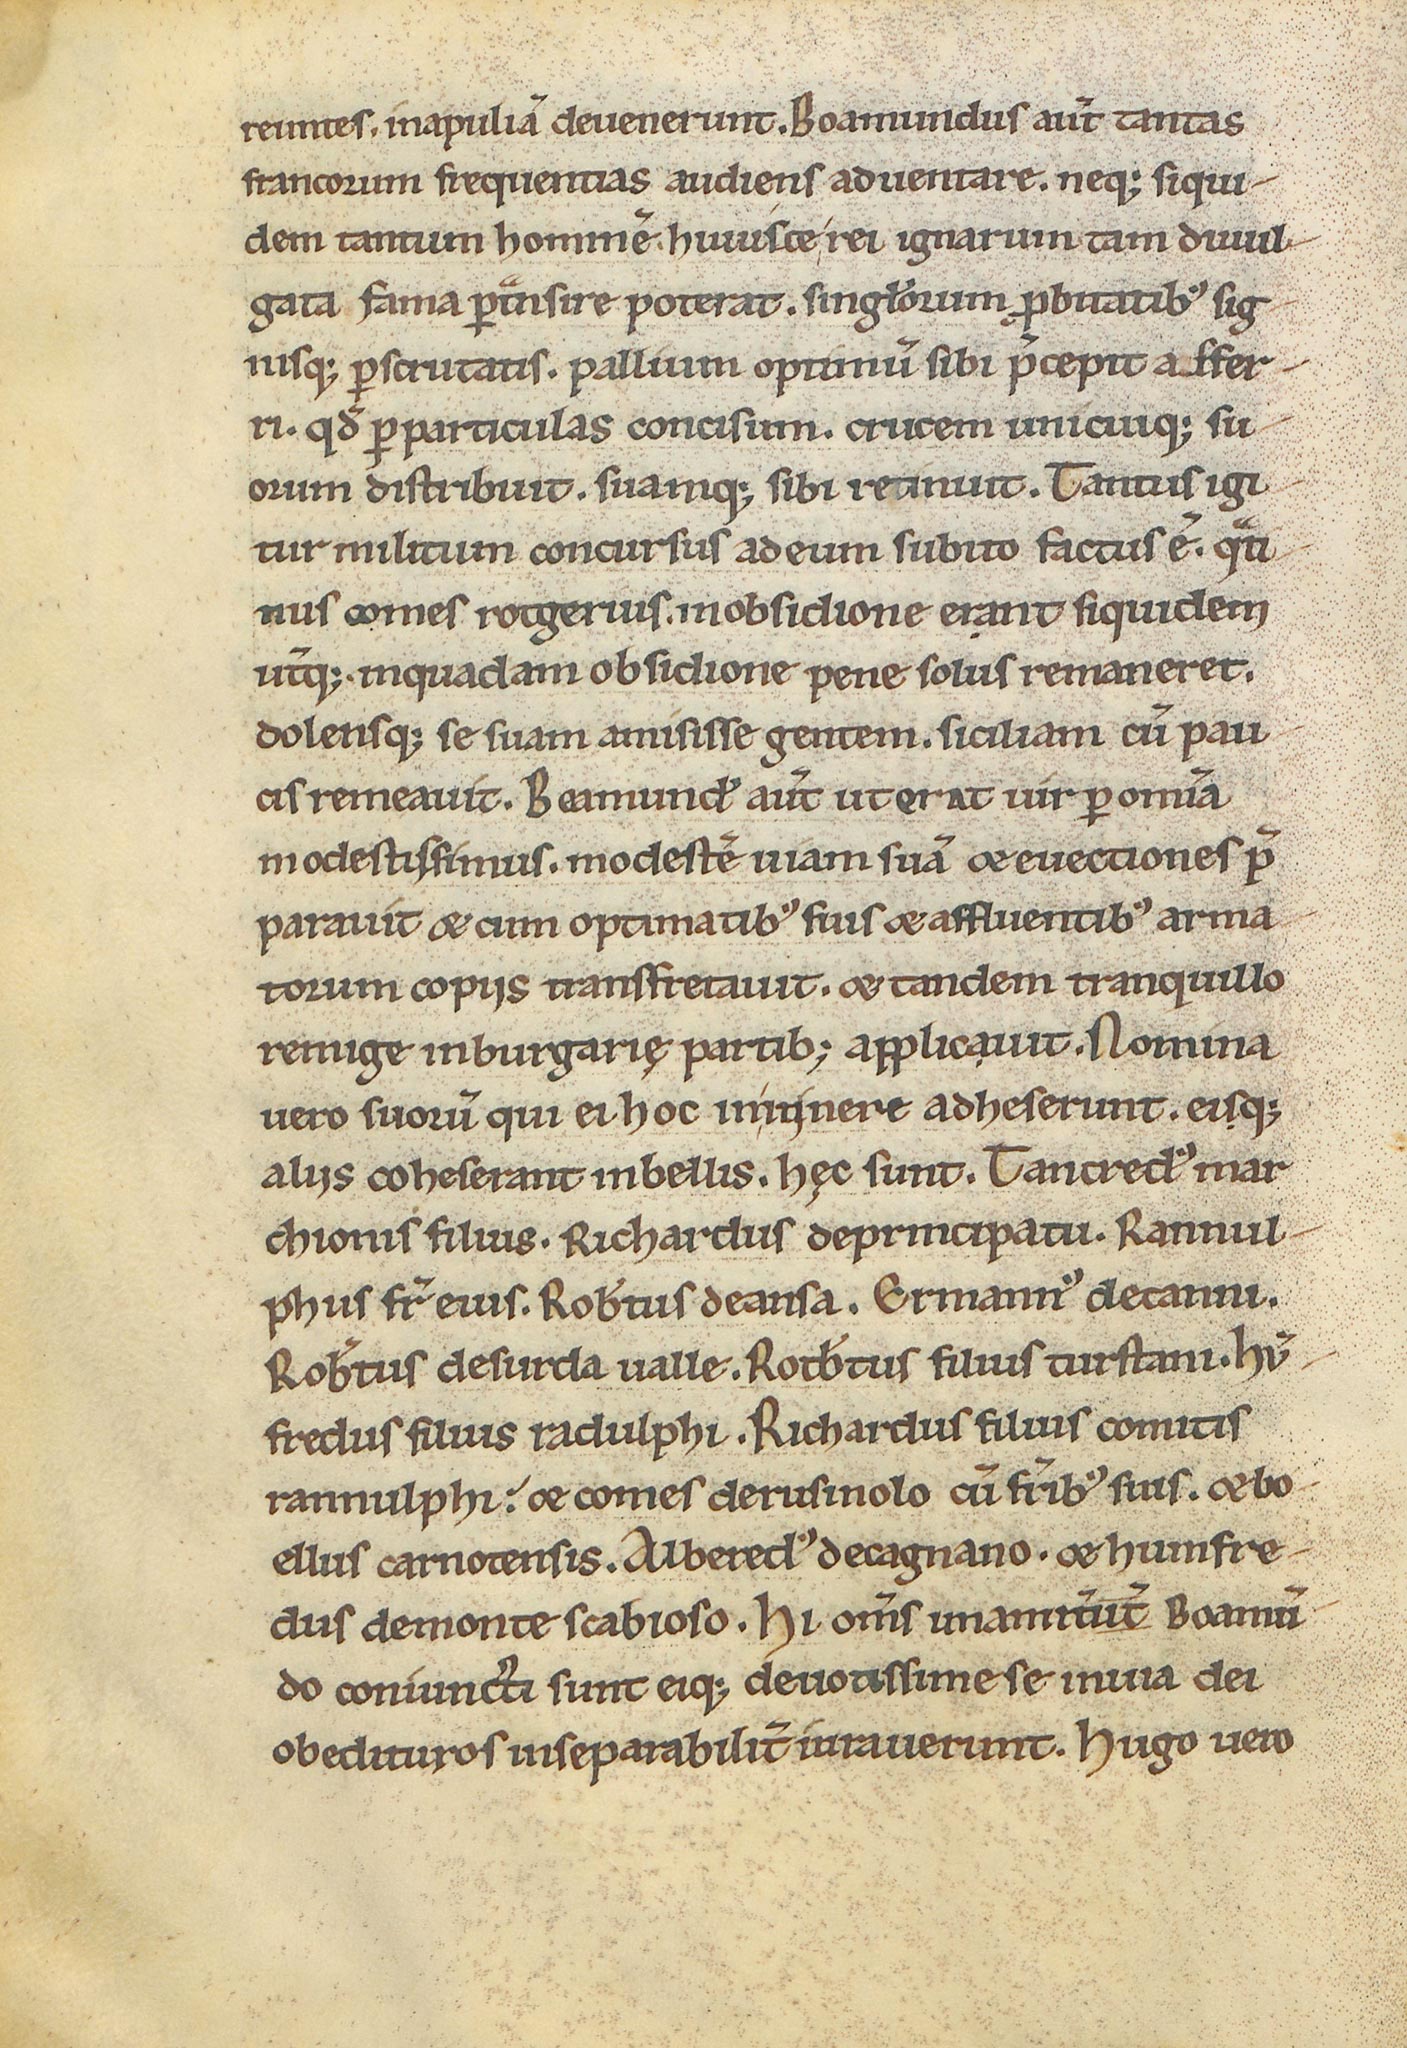 reuntes. inapuliā deuenerunt. Boamundus aut̄ tantas
francorum frequentias audiens aduentare. neq; siqui-
dem tantum hominē huiusce rei ignarum tam diuul-
gata fama ꝑtͣnsire poterat. singłorum ꝓbitatibꝰ sig-
nisq; ꝑscrutatis. pallium optimū sibi p̄cepit affer-
ri. qđ ꝑparticulas concisum. crucem unicuiq; su
orum distribuit. suamq; sibi retinuit. Tantus igi
tur militum concursus adeum subito factus ē. qͣti
nus comes rotgerius. inobsidione erant siquidem
ut̄q; inquadam obsidione pene solus remaneret.
dolensq; se suam amisisse gentem. siciliam cū pau
cis remeauit. Boamundꝰ aut̄ ut erat uir ꝑ omīa
modestissimus. modestē uiam suā & euectiones p̄
parauit & cum optimatibꝰ suis & affluentibꝰ arma
torum copijs transfretauit. & tandem tranquillo
remige inburgarię partib; applicauit. Nomina
uero suorū qui ei hoc itinere adheserunt. eisq;
alijs coheserant inbellis. hęc sunt. Tancredꝰ mar
chionis filius. Richardus deprincipatu. Rannul-
phus fr̄ eius. Rob̄tus deansa. Ermannꝰ decanni.
Rob̄tus desurda ualle. Rotb̄tus filius turstani. hū-
fredus filius radulphi. Richardus filius comitis
rannulphi. & comes derusinolo cū fr̄ibꝰ suis. & bo
ellus carnotensis. Alberedꝰ decagnano. & humfre-
dus demonte scabioso. Hi om̄s unanimit̄ Boamū-
do coniuncti sunt eiq; deuotissime se inuia dei
obedituros inseparabilit̄ iurauerunt. Hugo uero